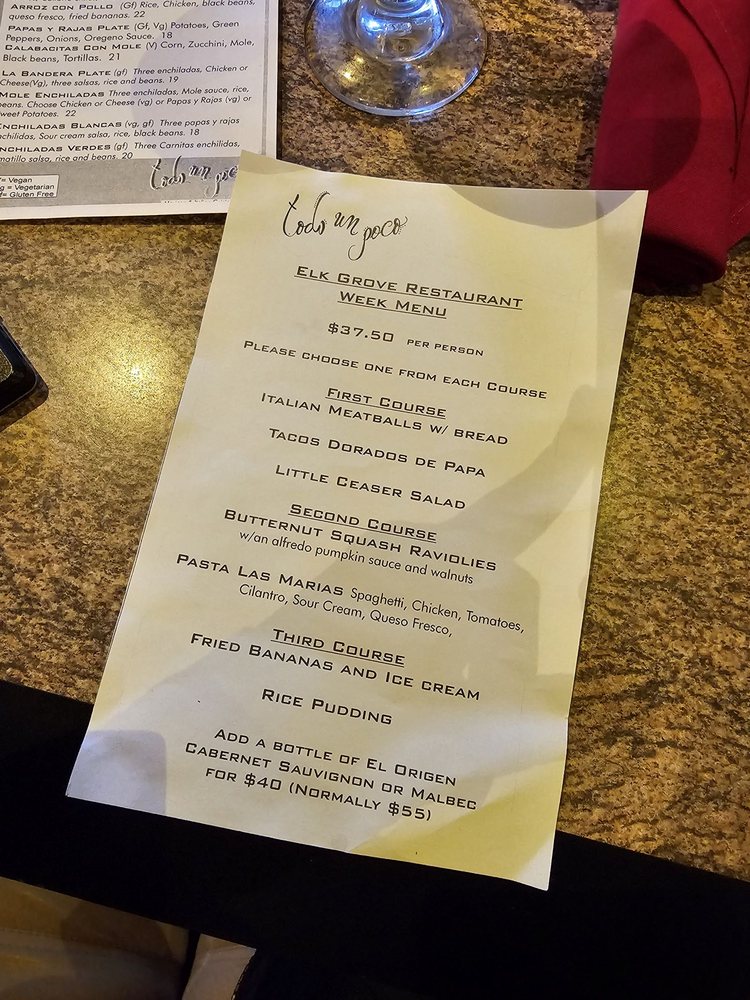 Arroz con Pollo (Gf) Rice, Chicken, black beans,
queso fresco, fried bananas. 22
Papas y Rajas Plate (Gf, Vg) Potatoes, Green
Peppers, Onions, Oregeno Sauce. 18
Calabacitas Con Mole (V) Corn, Zucchini, Mole,
Black beans, Tortillas. 21
La Bandera Plate (gf) Three enchiladas, Chicken or
Cheese(Vg), three salsas, rice and beans. 19
Mole Enchiladas Three enchiladas, Mole sauce, rice,
beans. Choose Chicken or Cheese (vg) or Papas y Rajas (vg) or
Sweet Potatoes. 22
Enchiladas Blancas (vg, gf) Three papas y rajas
enchilidas, Sour cream salsa, rice, black beans. 18
Enchiladas Verdes (gf) Three Carnitas enchiladas,
matillo salsa, rice and beans. 20
= Vegan
g = Vegetarian
f= Gluten Free
todo un poc
todo un poco
Elk Grove Restaurant
Week Menu
$37.50 per person
Please choose one from each Course
First Course
Italian Meatballs w/ bread
Tacos Dorados de Papa
Little Ceaser Salad
Second Course
Butternut Squash Raviolies
w/an alfredo pumpkin sauce and walnuts
Pasta Las Marias Spaghetti, Chicken, Tomatoes,
Cilantro, Sour Cream, Queso Fresco,
Third Course
Fried Bananas and Ice cream
Rice Pudding
Add a bottle of El Origen
Cabernet Sauvignon or Malbec
for $40 (Normally $55)